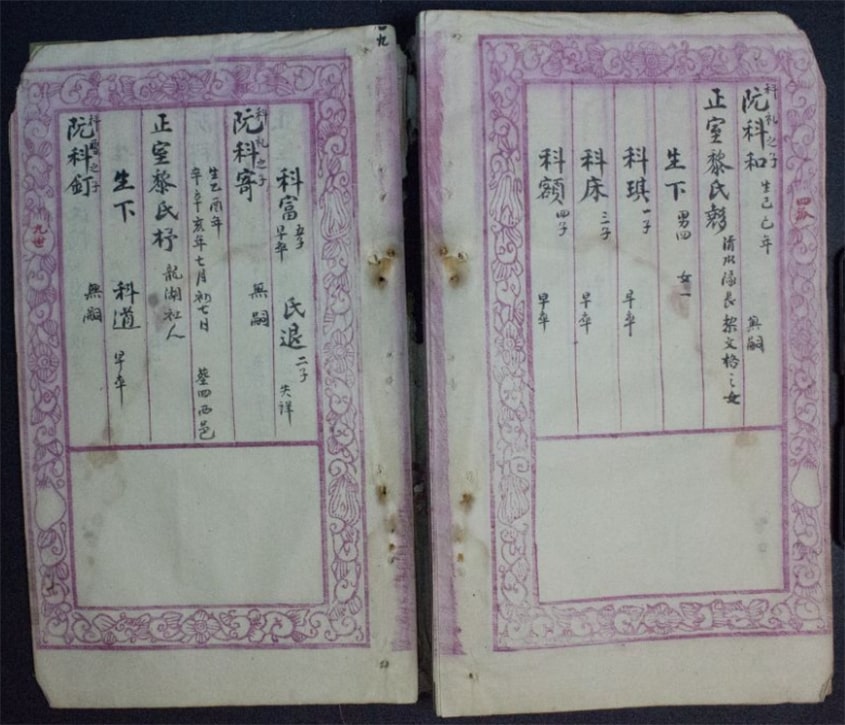 阮科和 科礼之子 生己巳年 無嗣
正室黎氏 清水隊長黎文格之女
生下 男四 女一
科琪 一子 早卒
科床 三子 早卒
科額 四子 早卒
科富 五子 早卒 民退 二子 失詳
阮科寄 科礼之子 無嗣
生乙酉年
卒辛亥年七月初七日 葬四西邑
正室黎氏杼 龍湖社人
生下 科道 早卒
阮科釘 之子 無嗣
九世
九